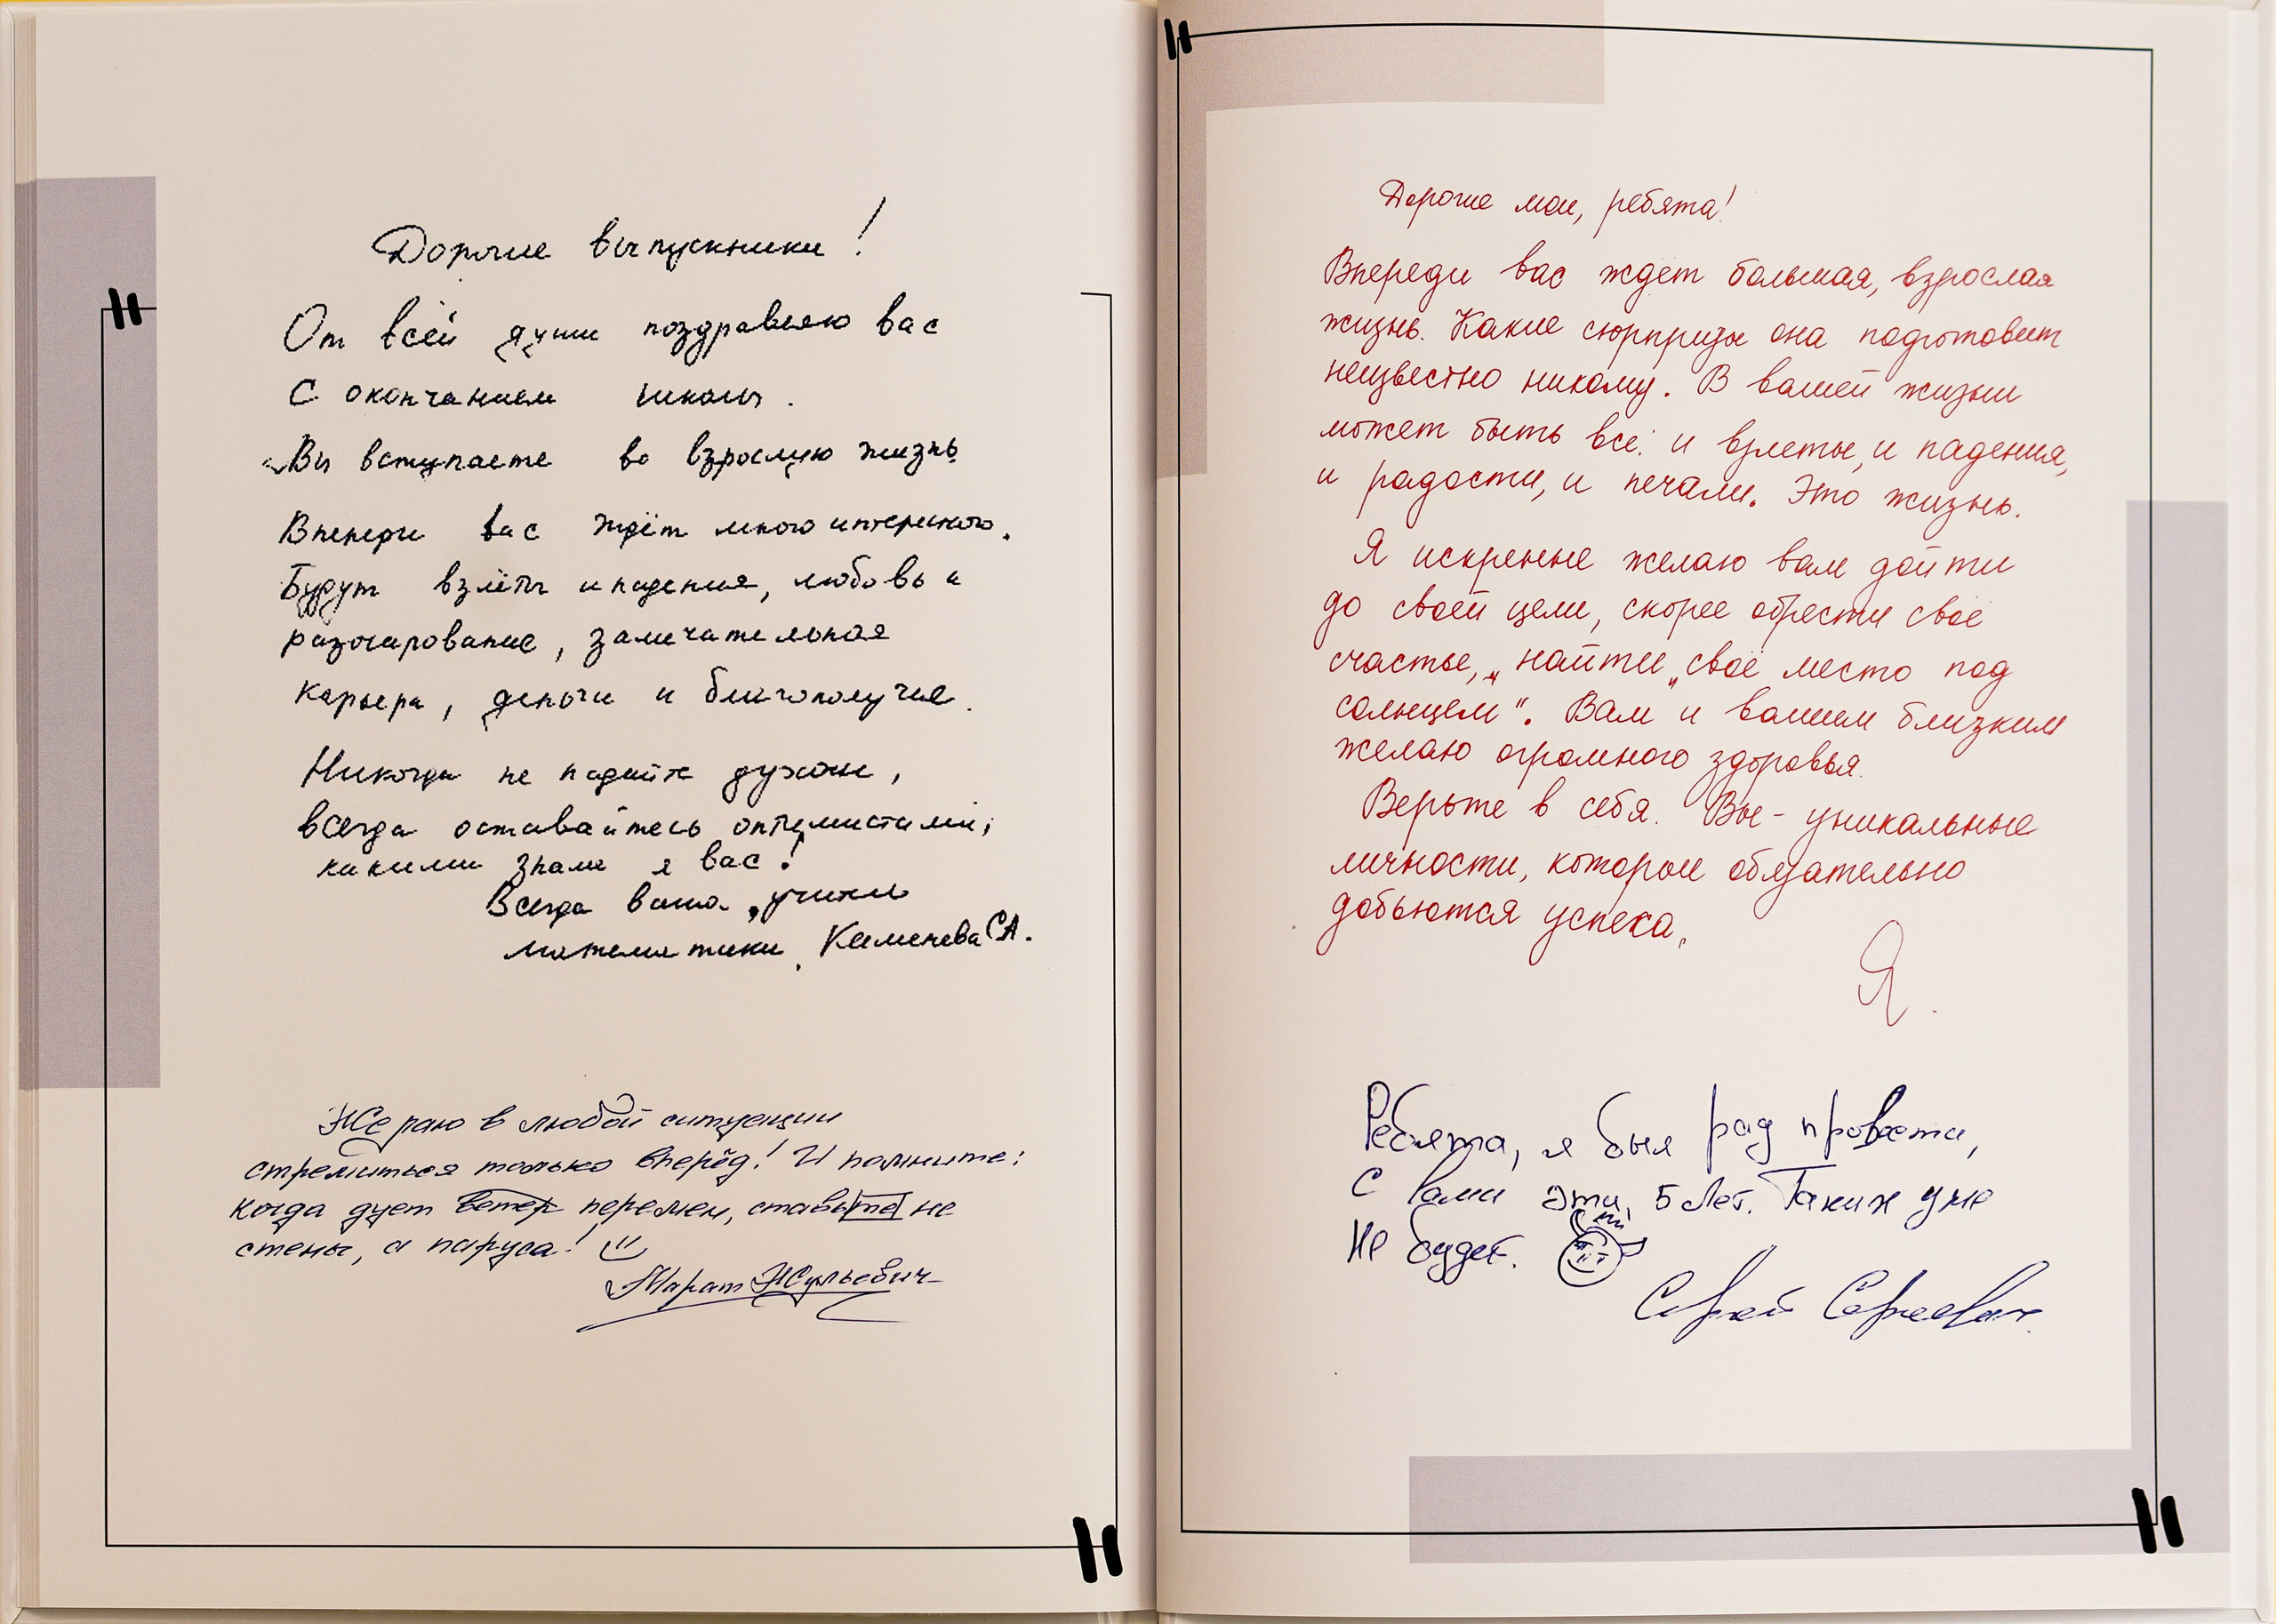 Дорогие выпускники!
От всей души поздравляю вас
с окончанием школы.
Вы вступаете во взрослую жизнь
Впереди вас ждёт много интересного.
Будут взлёты и падения, любовь и
разочарование, замечательная
карьера, деньги и благополучие.
Никогда не падайте духом,
всегда оставайтесь оптимистами,
какими знаю я вас!
Всегда ваша
математики, Каменева СА.
Желаю в любой ситуации
стремиться только вперёд! И помните:
когда дует ветер перемен, ставьте не
стены, а паруса!
Марат Жульевич
Дорогие мои, ребята!
Впереди вас ждет большая, взрослая
жизнь. Какие сюрпризы она подготовит
неизвестно никому. В вашей жизни
может быть всё: и взлеты, и падения,
и радости, и печали. Это жизнь.
Я искренне желаю вам дойти
до своей цели, скорее обрести своё
счастье, „найти „своё место под
солнцем". Вам и вашим близким
желаю огромного здоровья.
Верьте в себя. Вы - уникальные
личности, которые обязательно
добьются успеха.
Я.
Ребята, я был рад провести,
с Вами эти 5 лет. Таких уже
не будет.
Сергей Сергеевич